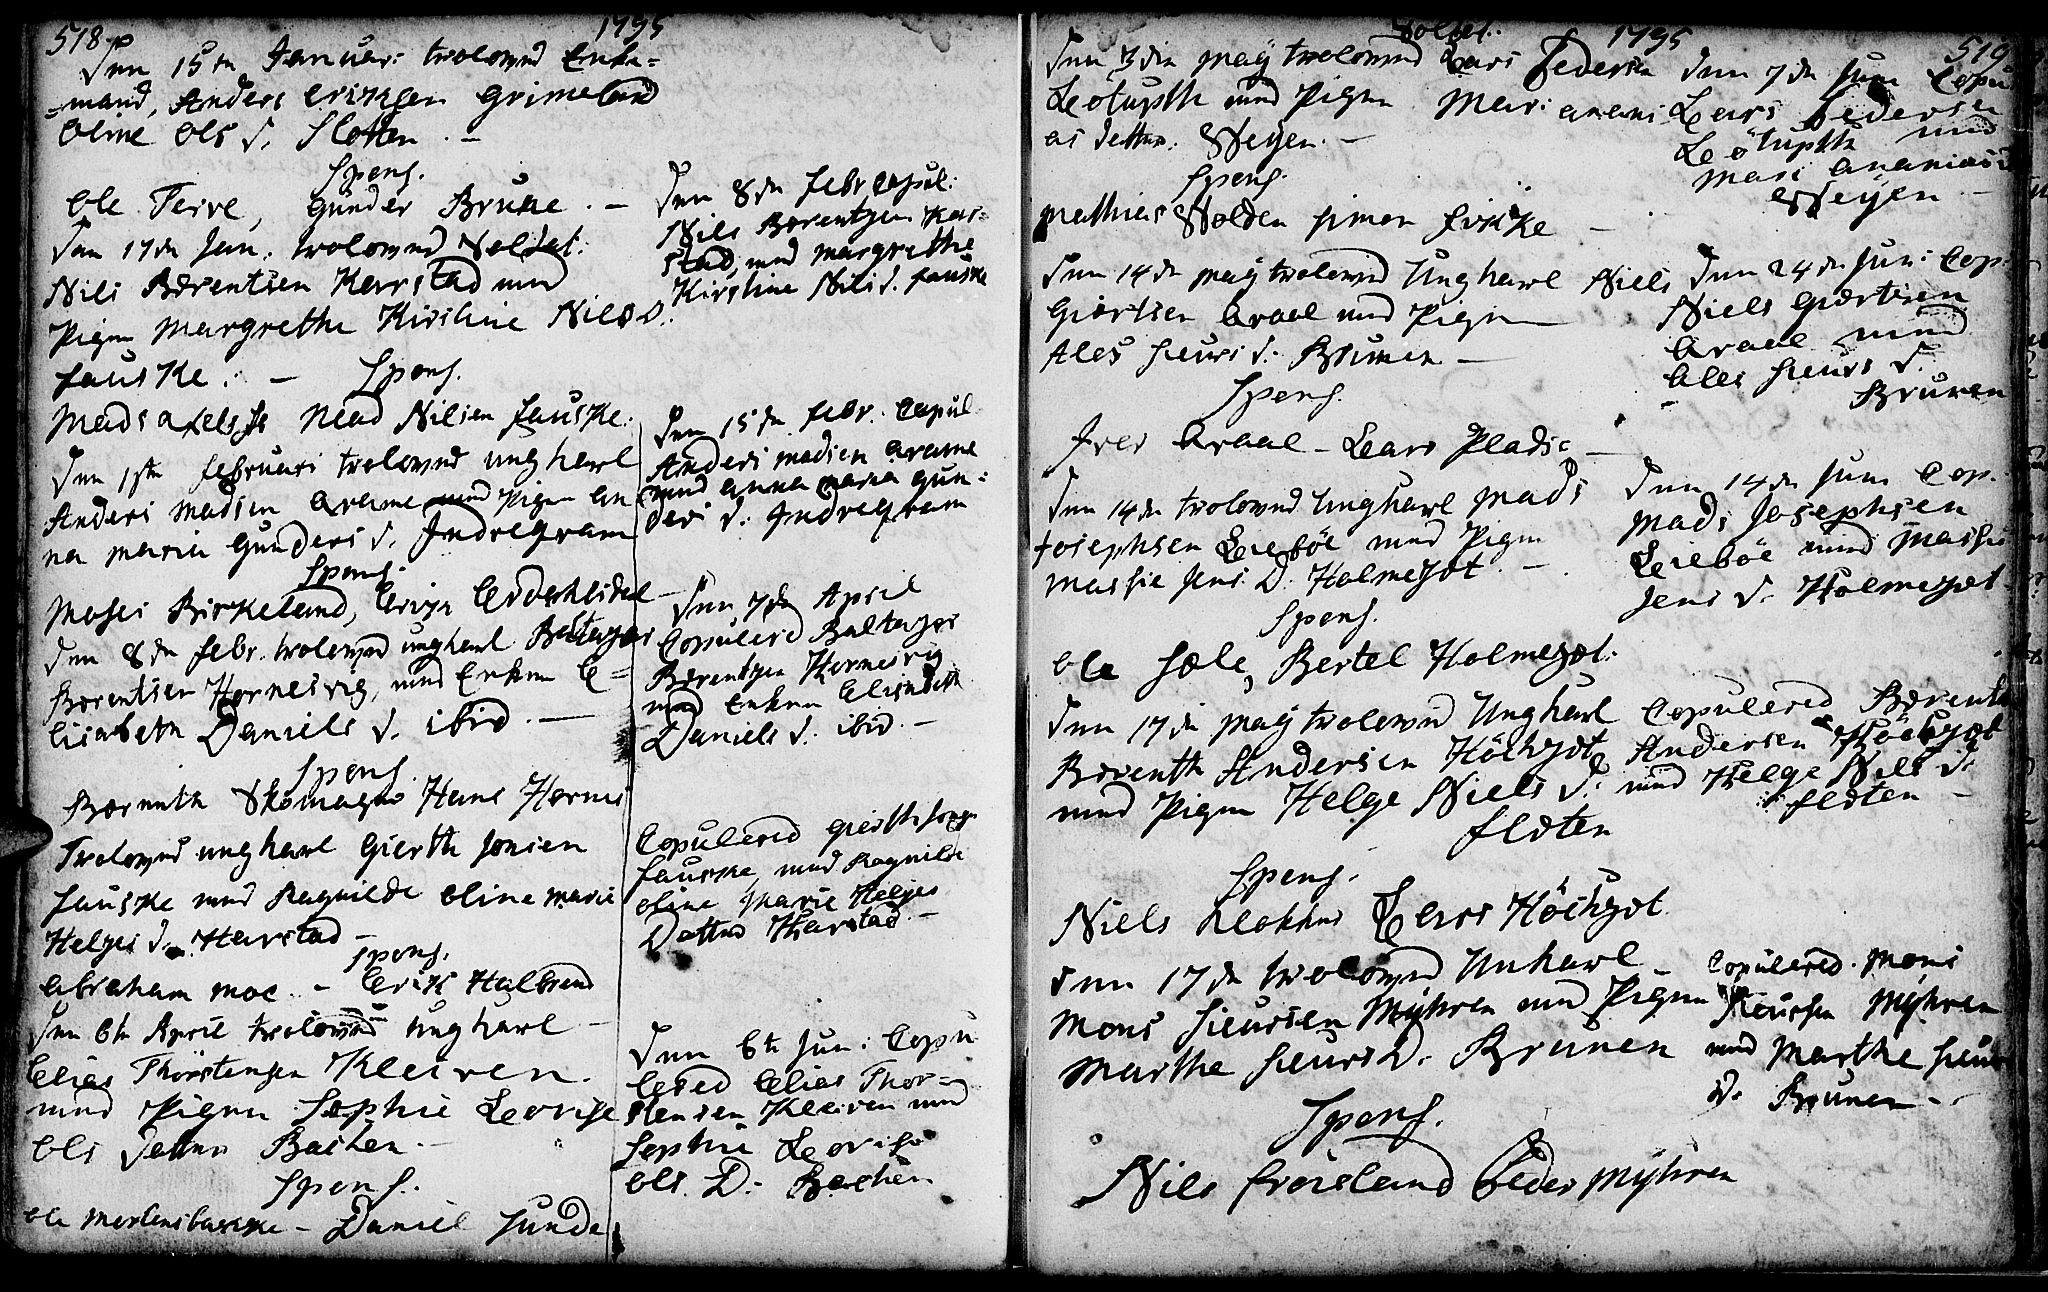 518
1795
Den 15de Januar: trolowed Enke-
-mand, Anders Erixsen Grimeland
Oline Ols d. Slotten. -
Spons.
Ole Terve, Gunder Brune. -
Den 17de Jan. trolowed Soldat:
Nils Bærentsen Karstad med
Pigen Margrethe Kirstine Nils D.
fauske. - Spons.
Mads Nead Nilsen fauske.
Den 1ste februari trolowed ungkarl
Anders Madsen Arame med Pigen An
na maria Gunders d. Indregram
Spons.
Moses Birkeland,
Den 8de febr. trolowed ungkarl Baltazer
Bærentsen Hornesvig, med Enken E=
lisabeth Daniels d. ibid. -
Spons.
Bærenth Skomager Hans Hornes
Trolowed ungkarl Gierth Jonsen
fauske med Ragnilde Oline Marie
Helges d. Harstad -
Spons.
Abraham moe. - Erik Halbrend
Den 6te April trolowed ungkarl -
Elias Thorstensen Kleiven.
med Pigen Sophie Lovise
Ols Datter Bachen. -
Spons.
Ole - Daniel Sunde
Den 8de febr copul:
Nils Bærentzen Kar=
stad, med margrethe
Kirstine Nils d. fauske
Den 15de febr. Copul
Anders madsen arame
med anna maria gun-
ders d. Indregram
Den 7de April
Copulered Baltazer
Bærentzen Hornesvig
med Enken Elisabeth
Daniels d. ibid. -
Copulered Gierth Jons.
fauske, med Ragnilde
Oline Marie Helges
Datter Harstad. -
Den 6te Jun: Copu
lered Elias Thor-
stensen Kleiven med
Sophie Lovise
Ols. D. Bachen
1795
519
Soldat:
Den 3die maij trolowed Lars Pedersen
Leotupth med Pigen Mari anani
as datter. Weyen. -
Spons.
mathias Wolden simon -
Den 14de maij trolowed Ungkarl Niels
Giærtsen Araal med Pigen
Ales Siurs d. Brunen -
Spons.
Iver Araal - Lars Pladse -
Den 14de trolowed Ungkarl Mads
Josephsen Leebøe med Pigen
Massie Jens D. Holmegot. -
Spons.
Ole Sæle, Bertel Holmegot.
Den 17de maij trolowed Ungkarl
Bærenth Andersen Höchgot
med Pigen Helge Niels d.
fløten
Spons.
Niels Klokker Lars Höchgot
Den 17de trolowed Unkarl -
Mons Siursen Myhren med Pigen
Marthe Siurs D. Brunen
Spons.
Nils frøisland Peder Myhren
Den 7de Juni Copu
Lars Pedersen
Leötupth med
Mari ananias d
Weyen -
Den 24de Jun: Cop.
Niels Giærtsen
Araal med
Ales Siurs d.
Brunen
Den 14de Juni Cop.
Mads Josephsen
Leebøe med Massie
Jens d. Holmegot
Copulered Bærenth
Andersen Höchgot
med Helge Niels d.
fløten -
Copulered. Mons
Siursen Myhren
med Marthe Siurs
d. Brunen -